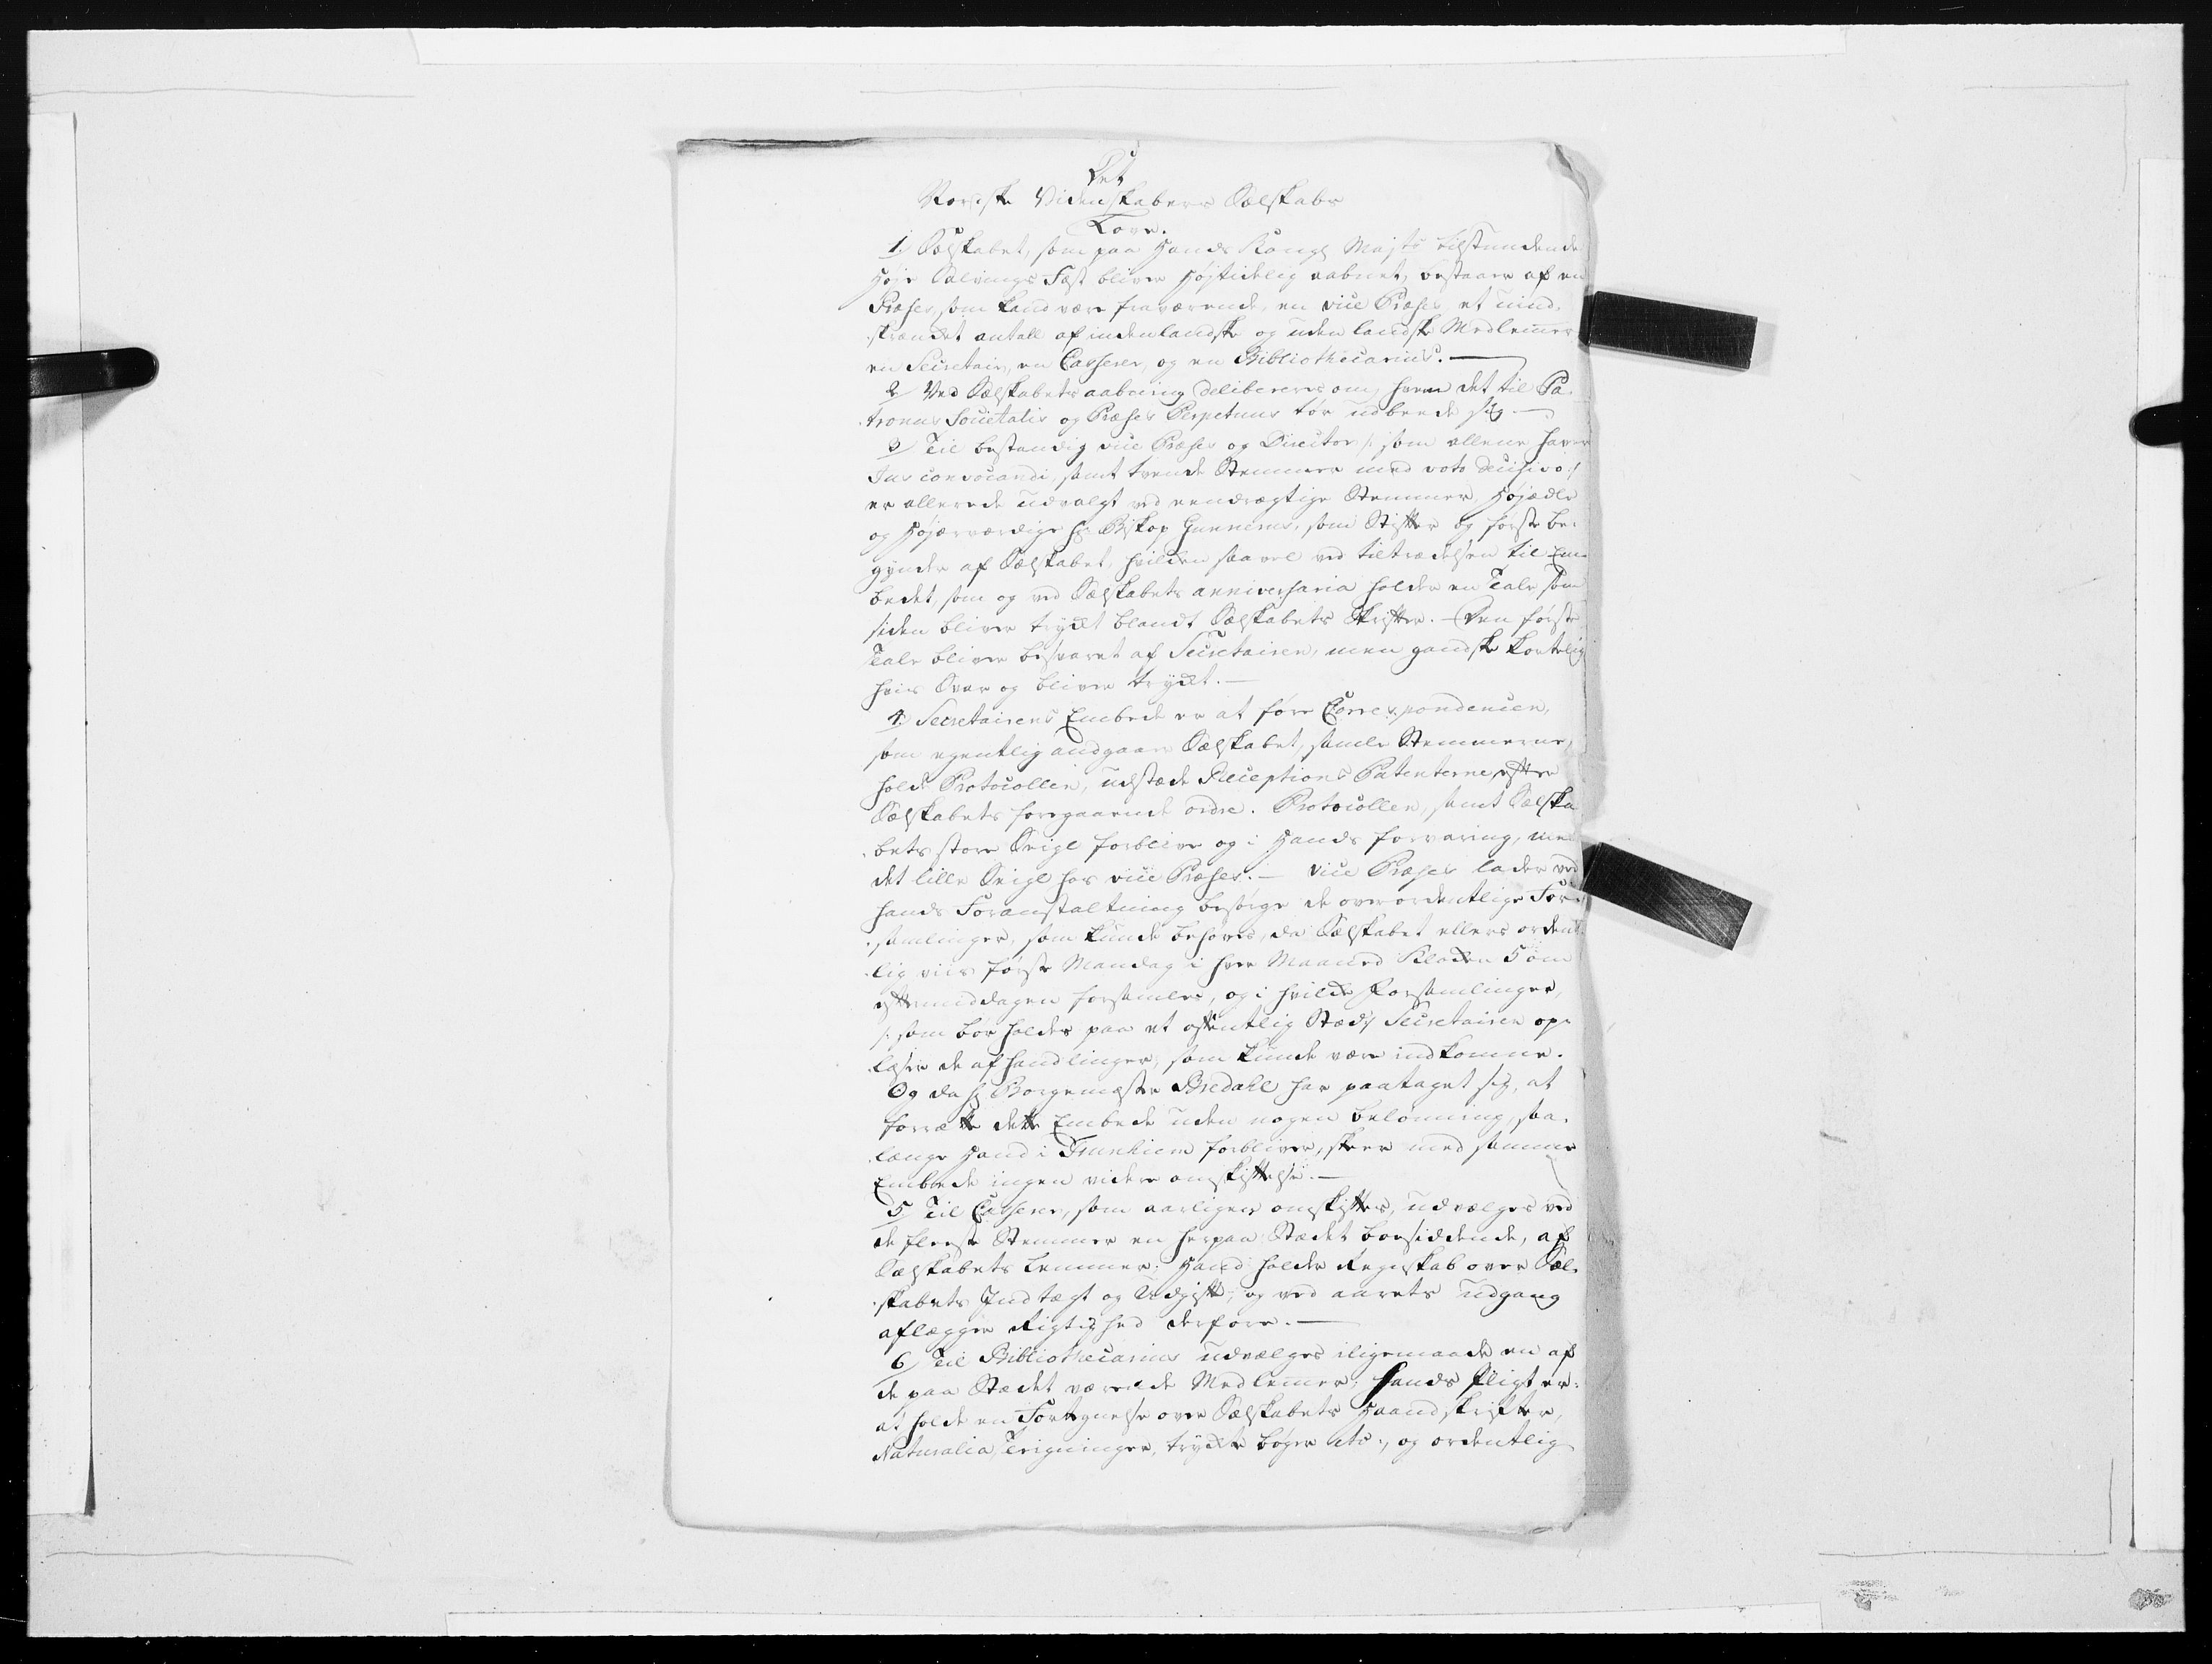 Det
Norske Videnskabers Sælskabs
Love.
1/ Sælskabet, som paa Hands Kongl Majts tilstundende
Høje Salvings Fæst bliver højtidelig aabnet, bestaaer af en
Præses, som kand være fraværende, en vice Præses, et uind-
skrændket antall af indenlandske og udenlandske Medlemmer
en Secretair, en Casserer, og en Bibliothecarius. —
2/ Ved Sælskabets aabning delibereres om, hvem det til Pa-
tronus Societatis og Præses Perpetuus tør udbeede sig —
3/ Til bestandig vice Præses og Director /: som allene haver
Jus convocandi, samt tvende Stemmer med voto decisivo :/
er allerede udvalgt ved eendrægtige Stemmer, Højædle
og Højærværdige Hr Biskop Gunnerus, som Stifter og første be-
gynder af Sælskabet, hvilken saavel ved tiltrædelsen til Em-
bedet, som og ved Sælskabets anniversaria holder en Tale som
siden bliver trykt blandt Sælskabets Skrifter. — Den første
Tale bliver besvaret af Secretairen, men gandske kortelig
hvis Svar og bliver trykt. —
4/ Secretairens Embede er at føre Correspondencen,
som egentlig andgaaer Sælskabet, samle Stemmerne,
holde Protocollen, udstæde Receptions Patenterne efter
Sælskabets foregaaende ordre. Protocollen, samt Sælska-
bets store Seigl forbliver og i Hands forvaring, men
det lille Seigl hos vice Præses. — vice Præses lader ved
hands Foranstaltning besørge de overordentlige For-
samlinger, som kunde behøves, da Sælskabet ellers ordent-
lig viis første Mandag i hver Maaned Klocken 5 om
eftermiddagen forsamles, og i hvilke Forsamlinger,
/: som bør holdes paa et offentlig Stæd :/ Secretairen op-
læser de afhandlinger, som kunde være indkomne.
Og da Hr Borgemester Bredahl har paataget sig, at
forrætte dette Embede uden nogen belønning, saa-
længe Hand i Trunhiem forbliver, skeer med samme
Embede ingen videre omskiftelse. —
5/ Til Casserer, som aarligen omskiftes, udvælges ved
de fleeste Stemmer en herpaa Stædet boesiddende, af
Sælskabets Lemmer; Hand holder Regnskab over Sæl-
skabets Indtægt og Udgift, og ved aarets udgang
aflægger Rigtighed derfore. —
6/ Til Bibliothecarius udvælges iligemaade en af
de paa Stædet værende Medlemmer; Hands Pligt er:
at holde en Fortegnelse over Sælskabets Haandskrifter,
Naturalia, Teigninger, trykte bøger etc:, og ordentlig